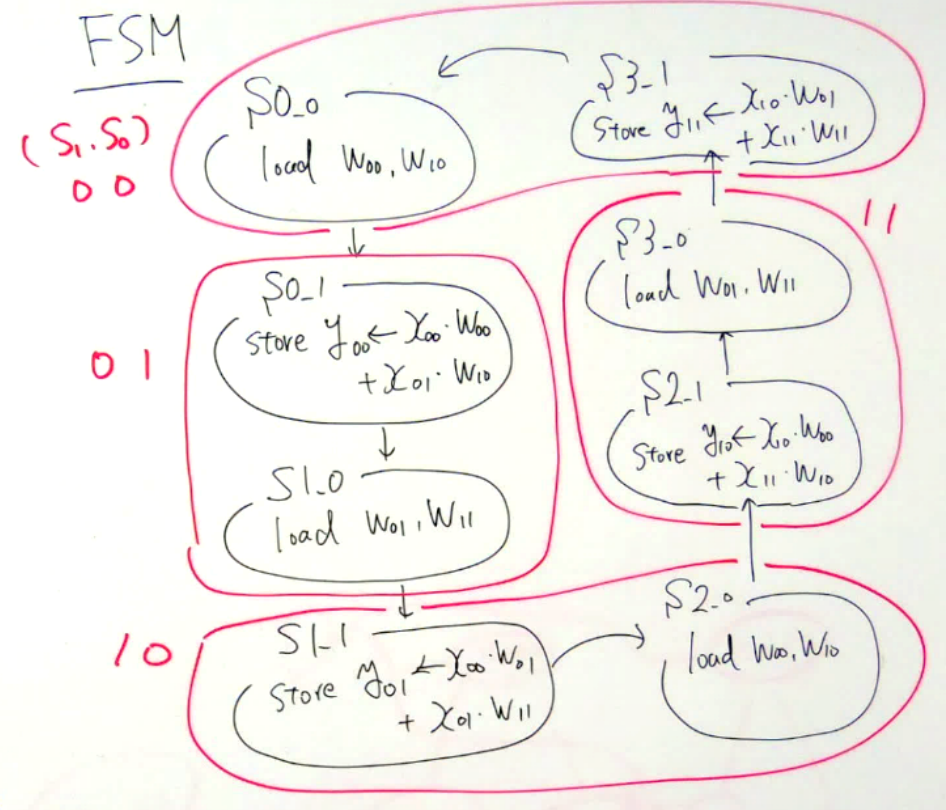 FSM
(S₁.S₀)
0 0
S0_0
load W₀₀, W₁₀
S3_1
Store y₁₁ ← X₁₀·W₀₁
+ X₁₁·W₁₁
0 1
S0_1
Store y₀₀ ← X₀₀·W₀₀
+ X₀₁·W₁₀
S1_0
load W₀₁, W₁₁
11
S3_0
load W₀₁, W₁₁
S2_1
Store y₁₀ ← X₁₀·W₀₀
+ X₁₁·W₁₀
10
S1_1
Store y₀₁ ← X₀₀·W₀₁
+ X₀₁·W₁₁
S2_0
load W₀₀, W₁₀